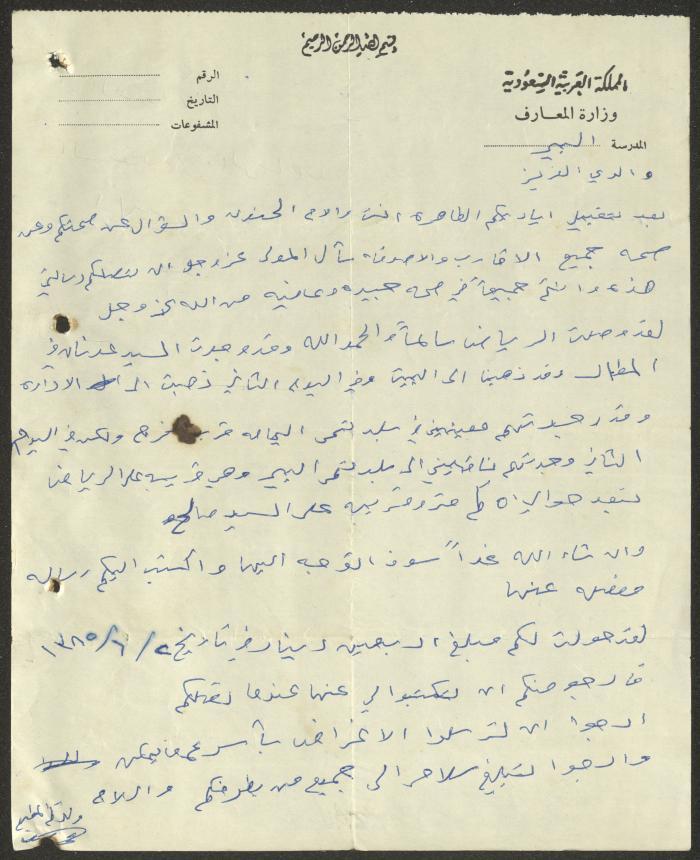 بسم الله الرحمن الرحيم
المملكة العربية السعودية
وزارة المعارف
المدرسة البير
الرقم
التاريخ
المشفوعات
والدي العزيز
بعد تقبيل اياديكم الطاهرة انت والام الحنون والسؤال عن صحتكم وعن
صحة جميع الاقارب والاصدقاء سأل المولى عز وجل ان تصلكم رسالتي
هذه وانتم جميعاً في صحه جيده وعافيه من الله عز وجل
لقد وصلت الرياض سالماً والحمد الله وقد وجدت السيد عدنان في
المطار وقد ذهبنا الى البيت وفي اليوم الثاني ذهبت الى الاداره
وقد وجدتهم معينيني في بلد تسمى اليمامه ولكن في اليوم
الثاني وجدتهم ناقليني الى بلد تسمى البير وهي قريبه على الرياض
تبعد حوالي كم وقريبه على السيد صالح
وان شاء الله غداً سوف اتوجه اليها واكتب اليكم رساله
مفصله عنها
لقد حولت لكم مبلغ اربعين دينار في تاريخ ٢ / ٦ / ١٣٨٥
فارجو منكم ان تكتبوا لي عنها عندما تصلكم
ارجوا ان ترسلوا الاغراض بأسرع ما يمكن
وارجوا تبليغ سلامي الى جميع من بطرفكم والسلام
ولدكم المطيع